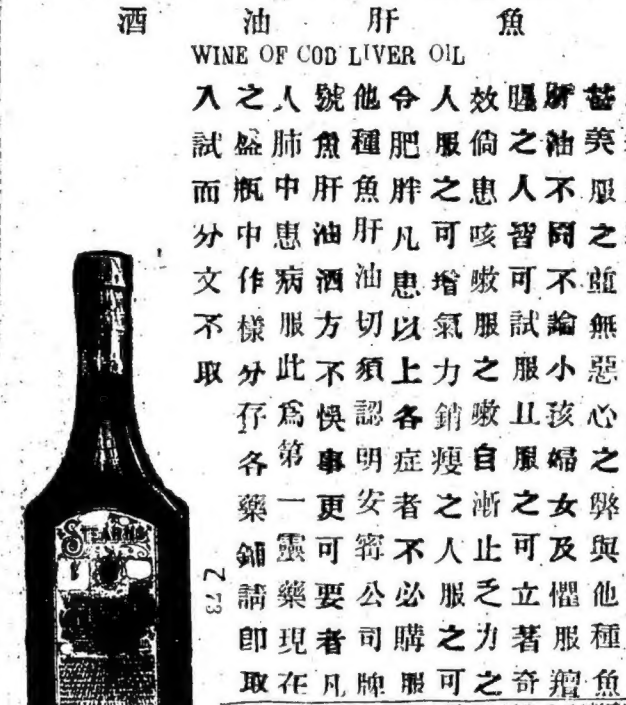 魚肝油酒
WINE OF COD LIVER OIL
美服之並無惡心之弊與他種魚
肝油不同不論小孩婦女及懼服羶
腥之人皆可試服且服之可立著奇
效倘患咳嗽服之嗽自漸止乏力之
人服之可增氣力銷瘦之人服之可
令肥胖凡患以上各症者不必購服
他種魚肝油切須認明安寗公司牌
號魚肝油酒方不悞事更可要者凡
人肺中患病服此為第一靈藥現在
之盛瓶中作樣分存各藥鋪請即取
入試而分文不取
STEARNS